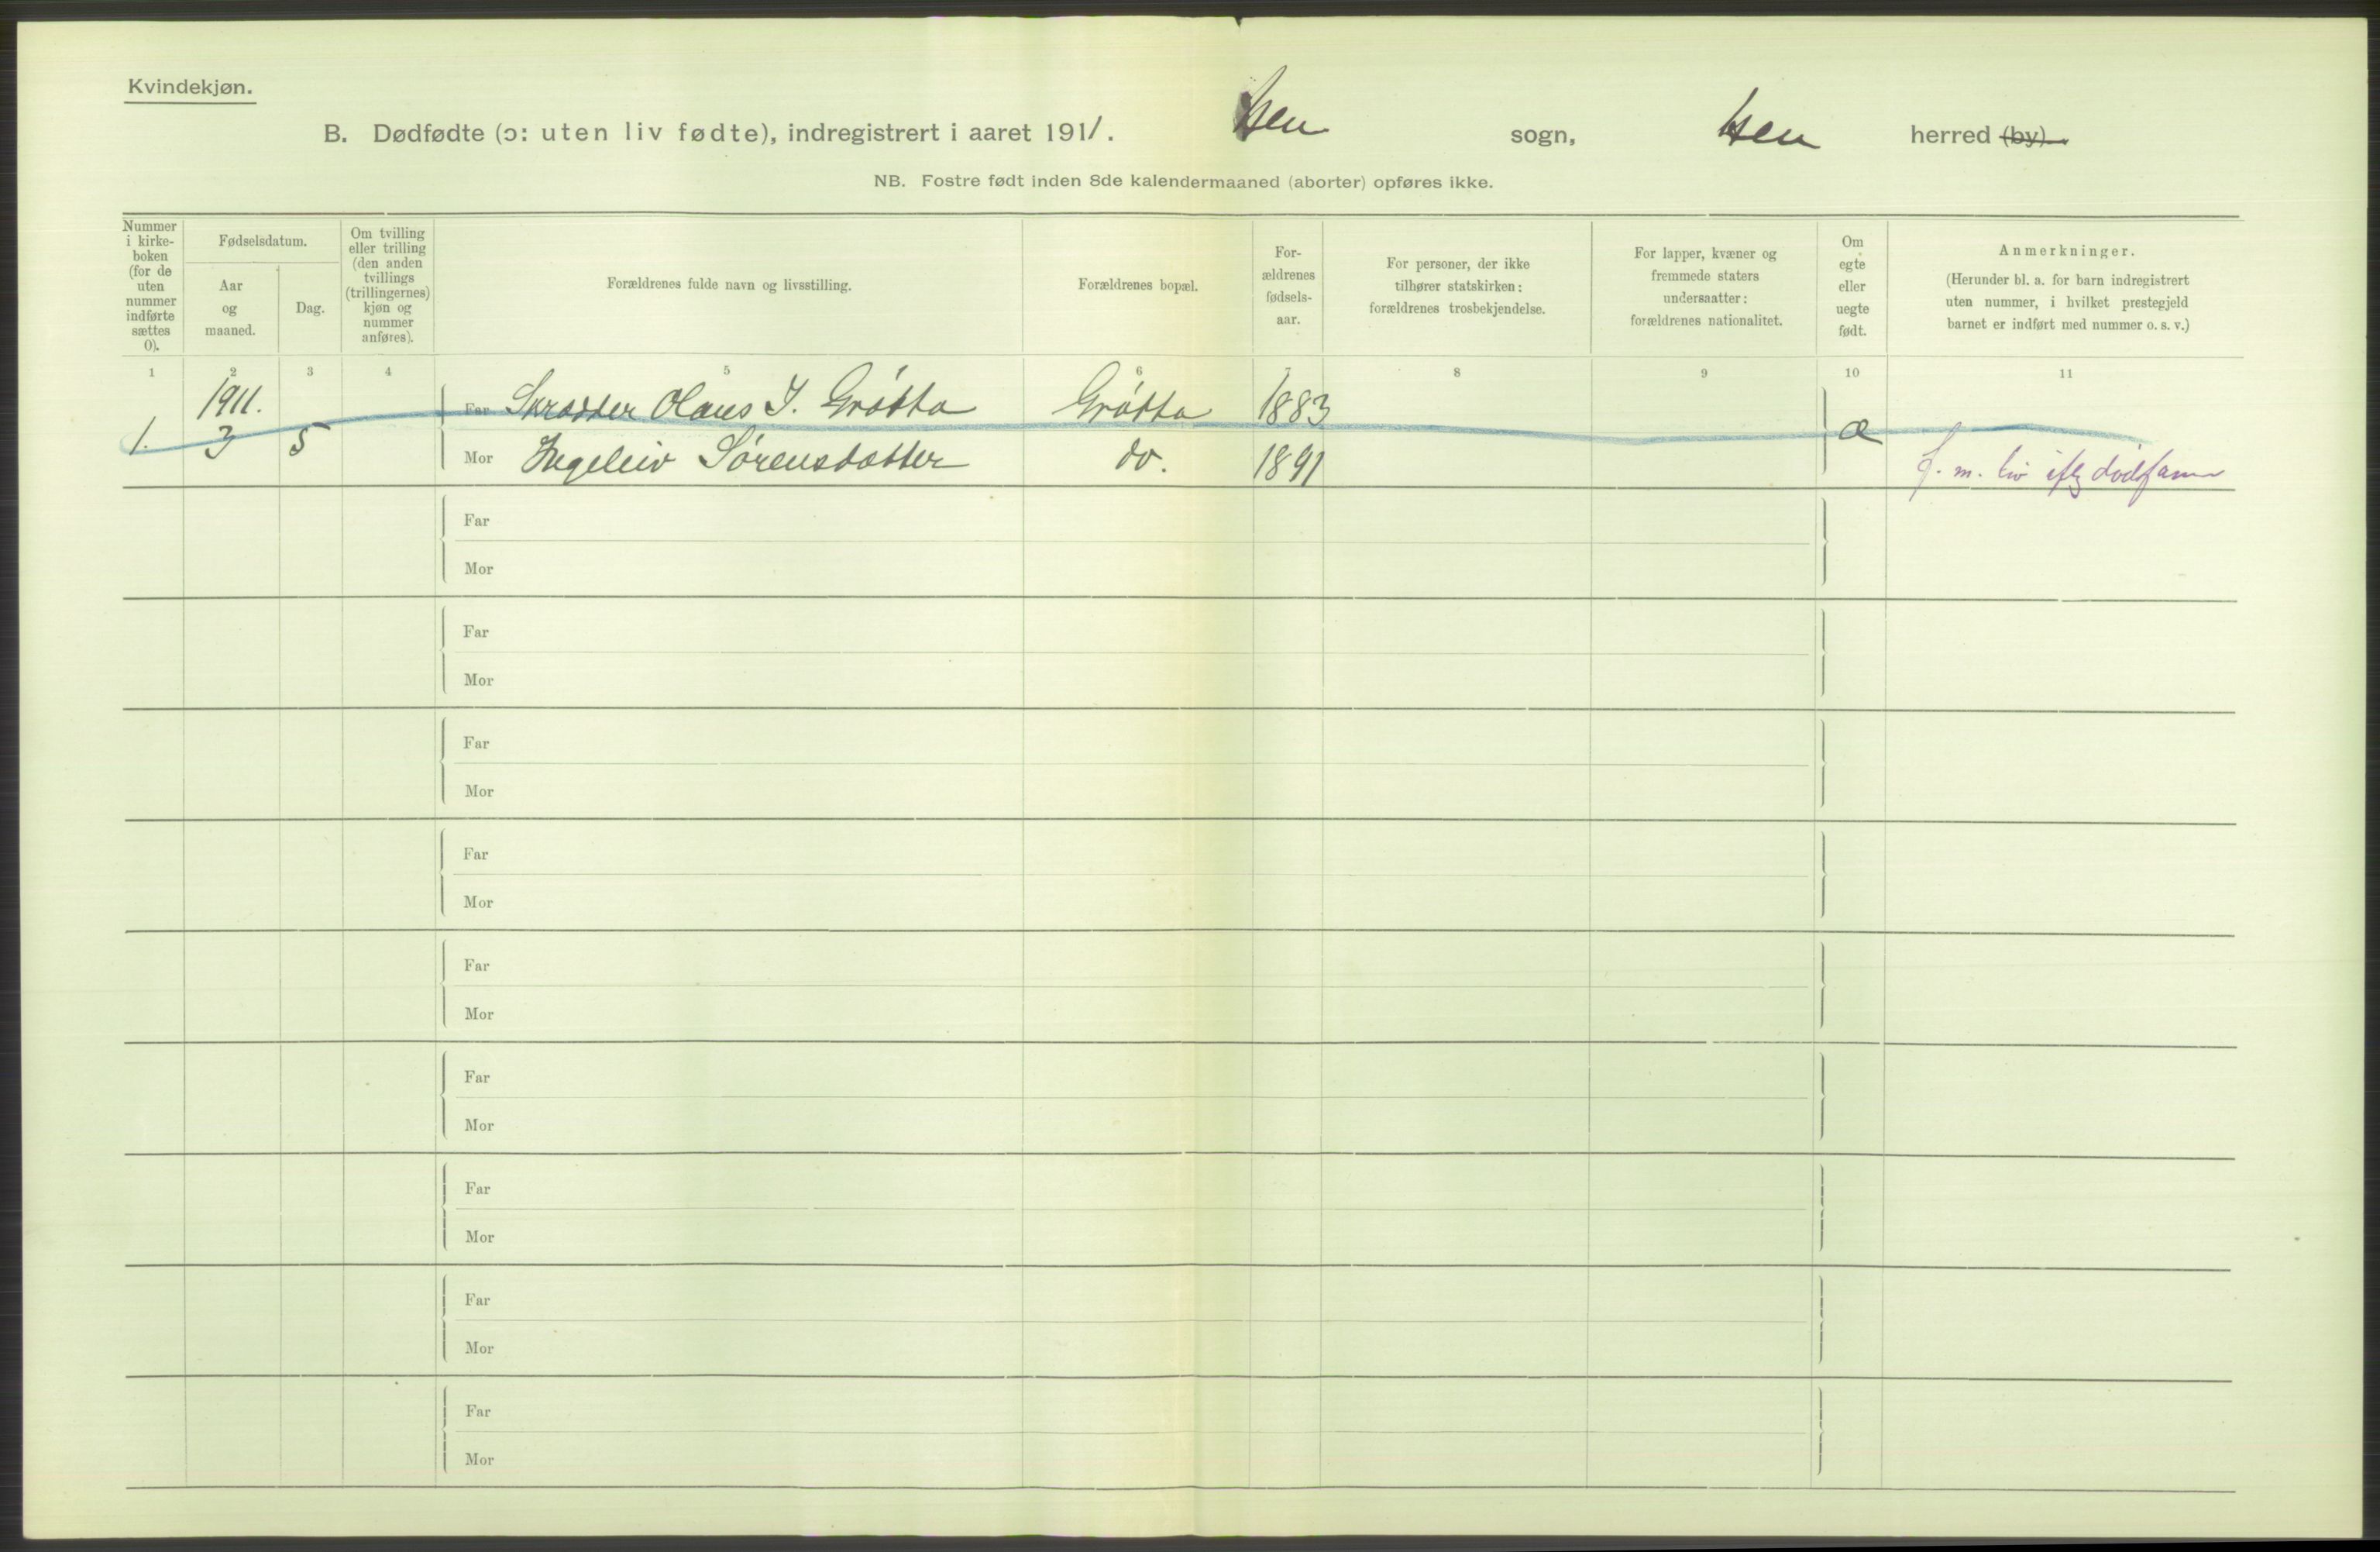 Kvindekjøn.
B. Dødfødte (ɔ: uten liv fødte), indregistrert i aaret 1911. Hen sogn, Hen herred (by).
NB. Fostre født inden 8de kalendermaaned (aborter) opføres ikke.
Nummer i kirke-boken (for de uten nummer indførte sættes 0).
Fødselsdatum.
Aar og maaned.
Dag.
Om tvilling eller trilling (den anden tvillings (trillingernes) kjøn og nummer anføres).
Forældrenes fulde navn og livsstilling.
Forældrenes bopæl.
For-ældrenes fødsels-aar.
For personer, der ikke tilhører statskirken: forældrenes trosbekjendelse.
For lapper, kvæner og fremmede staters undersaatter: forældrenes nationalitet.
Om egte eller uegte født.
Anmerkninger.
(Herunder bl. a. for barn indregistrert uten nummer, i hvilket prestegjeld barnet er indført med nummer o. s. v.)
1 2 3 4 5 6 7 8 9 10 11
1911.
Far Skrædder Olaus I. Grøtta Grøtta 1883
1. 3 5 æ
Mor Ingeleiv Sørensdatter do. 1891
f. m. liv iflg dødsfam
Far
Mor
Far
Mor
Far
Mor
Far
Mor
Far
Mor
Far
Mor
Far
Mor
Far
Mor
Far
Mor